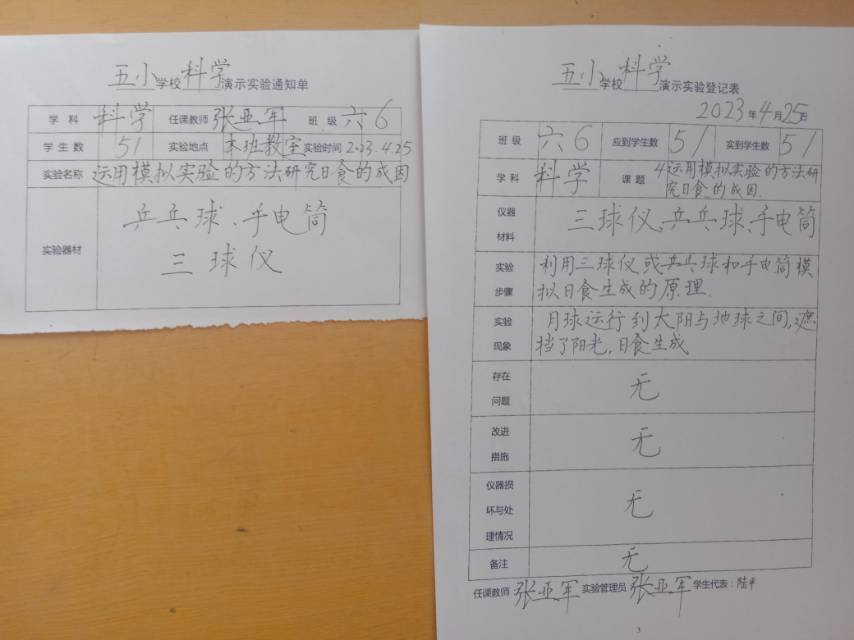 五小学校科学演示实验通知单
学科 科学 任课教师 张亚军 班级 六6
学生数 51 实验地点 本班教室 实验时间 2023.4.25
实验名称 运用模拟实验的方法研究日食的成因
实验器材 乒乓球、手电筒
三球仪
五小学校科学演示实验登记表
2023年4月25日
班级 六6 应到学生数 51 实到学生数 51
学科 科学 课题 4运用模拟实验的方法研
究日食的成因.
仪器材料 三球仪、乒乓球、手电筒
实验步骤 利用三球仪或乒乓球和手电筒模
拟日食生成的原理.
实验现象 月球运行到太阳与地球之间,遮
挡了阳光,日食生成
存在问题 无
改进措施 无
仪器损坏与处理情况 无
备注 无
任课教师 张亚军 实验管理员 张亚军 学生代表:陆
3